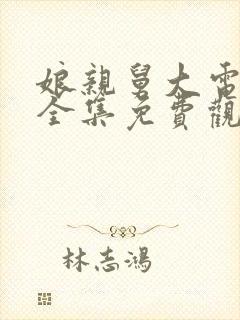 娘親舅大電
全集免費觀
林志鴻